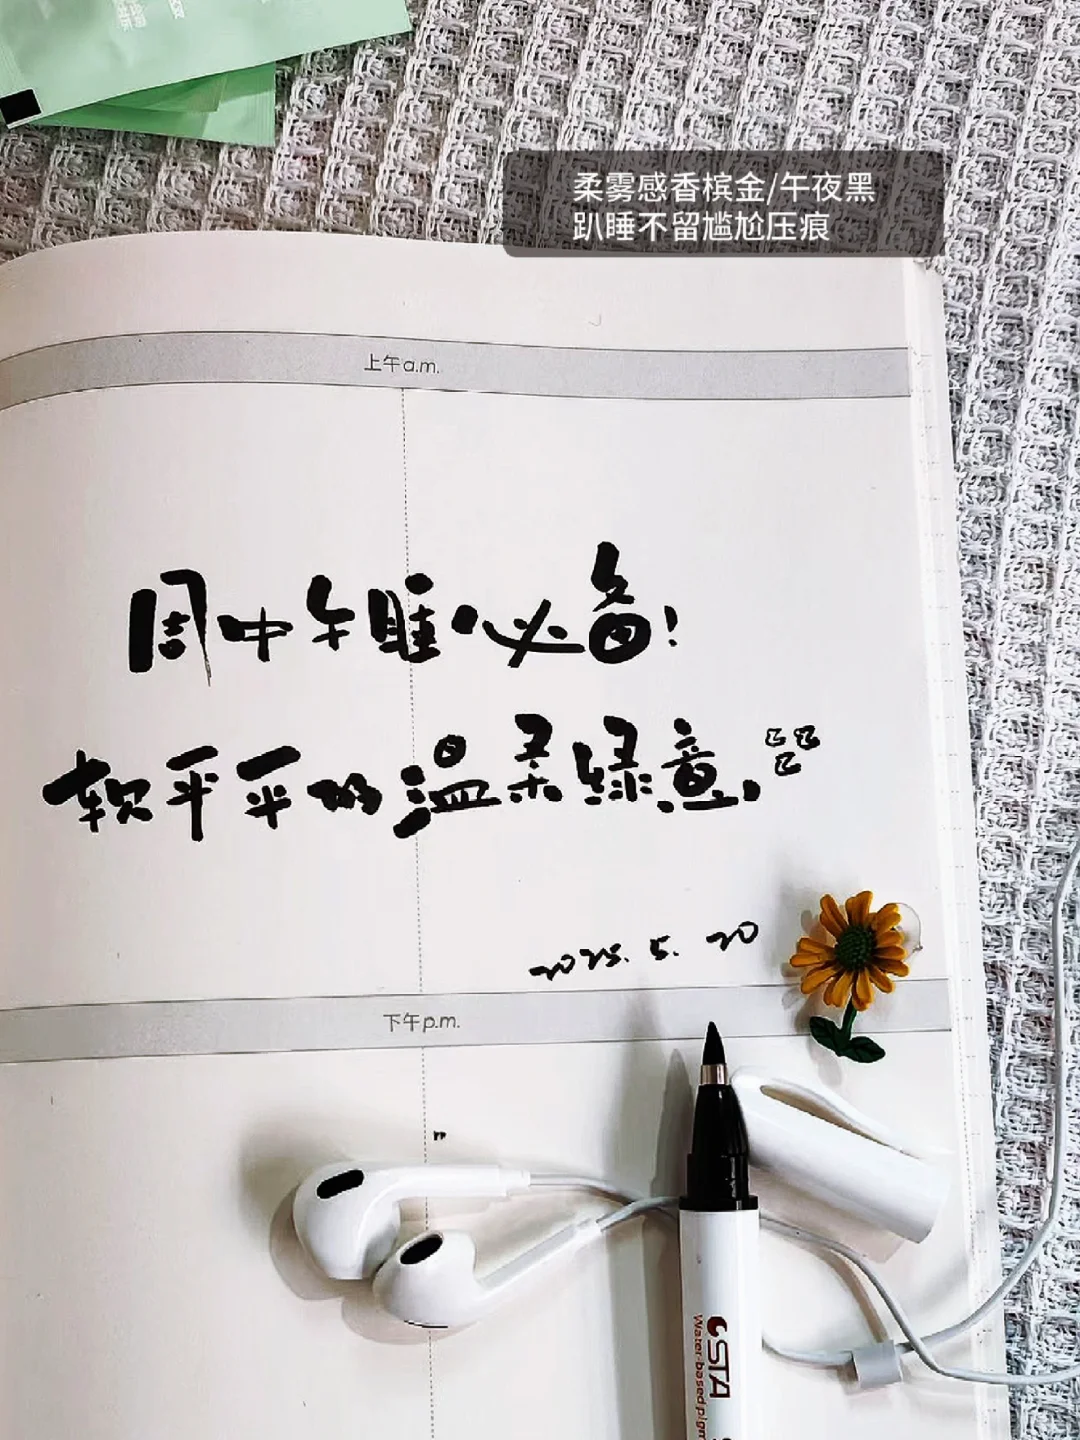 柔雾感香槟金/午夜黑
趴睡不留尴尬压痕
上午a.m.
周中午睡必备！
软乎乎的温柔绿意，
2025.5.20
下午p.m.
STA
Water-based pigm